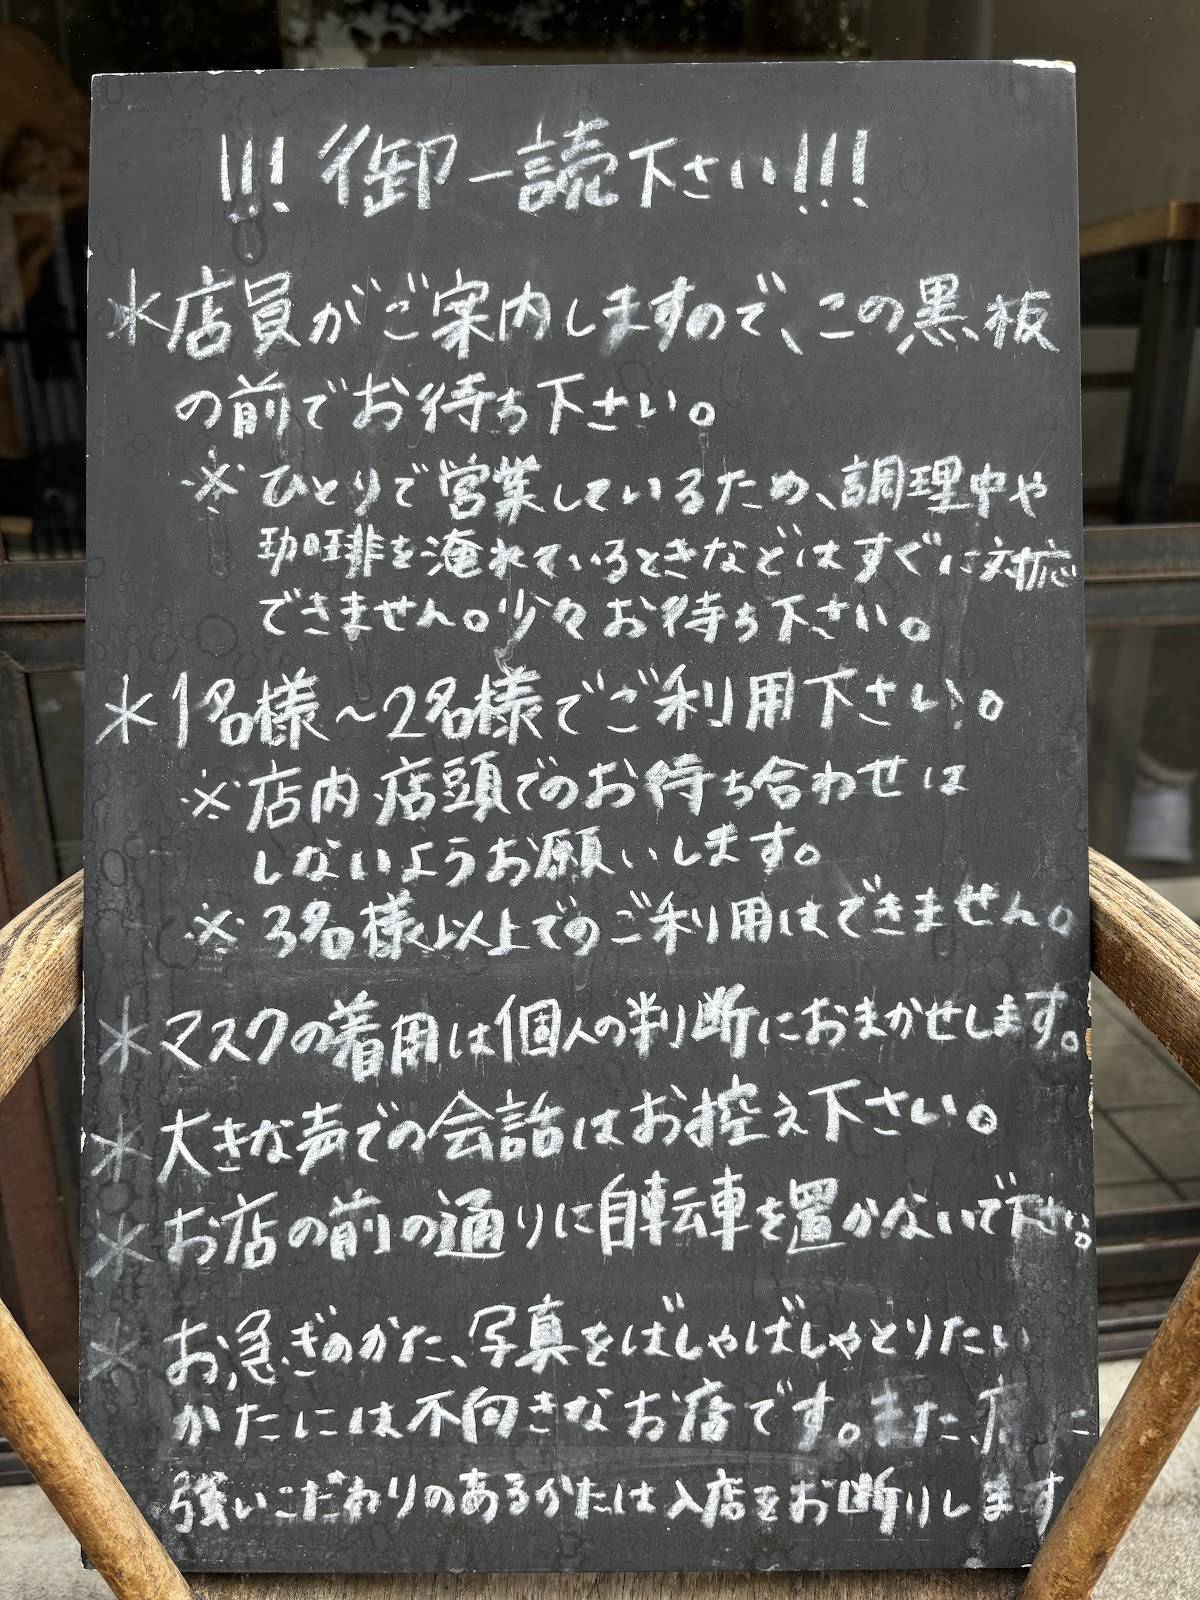 !!! 御一読下さい!!!
＊店員がご案内しますので、この黒板
の前でお待ち下さい。
※ひとりで営業しているため、調理中や
珈琲を淹れているときなどはすぐに対応
できません。少々お待ち下さい。
＊1名様〜2名様でご利用下さい。
※店内店頭でのお待ち合わせは
しないようお願いします。
※3名様以上でのご利用はできません。
＊マスクの着用は個人の判断におまかせします。
＊大きな声での会話はお控え下さい。
＊お店の前の通りに自転車を置かないで下さい。
＊お急ぎのかた、写真をばしゃばしゃとりたい
かたには不向きなお店です。また、に
強いこだわりのあるかたは入店をお断りします